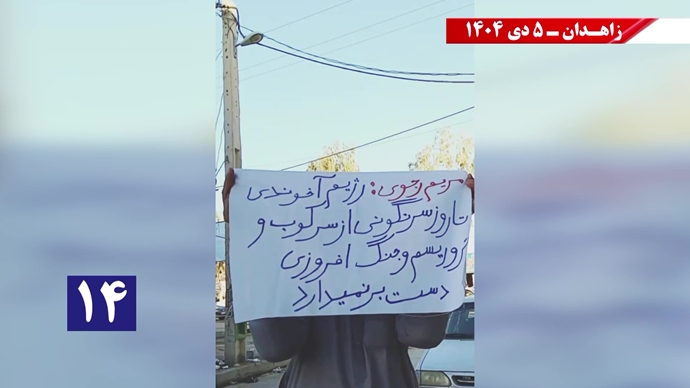 زاهدان ـ ۵ دی ۱۴۰۴
مریم رجوی: رژیم آخوندی
تا روز سرنگونی از سرکوب و
تروریسم و جنگ افروزی
دست بر نمیدارد
۱۴